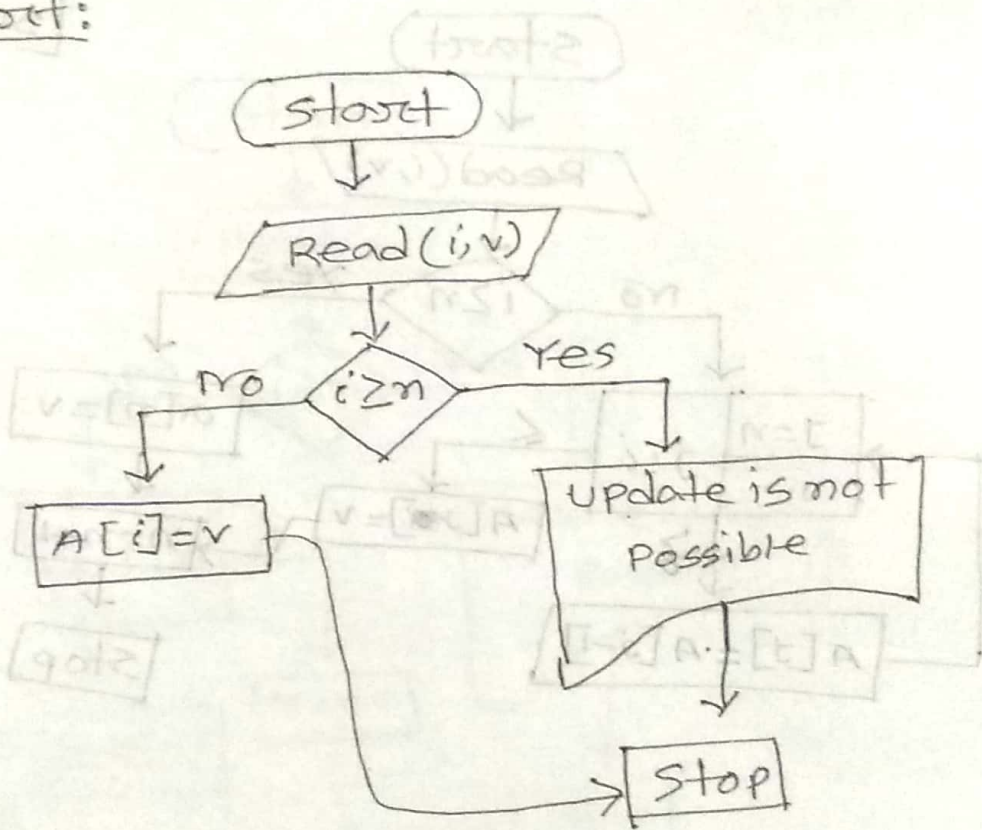 start
Read (i,v)
i≥n
No
Yes
A[i]=v
update is not
possible
Stop